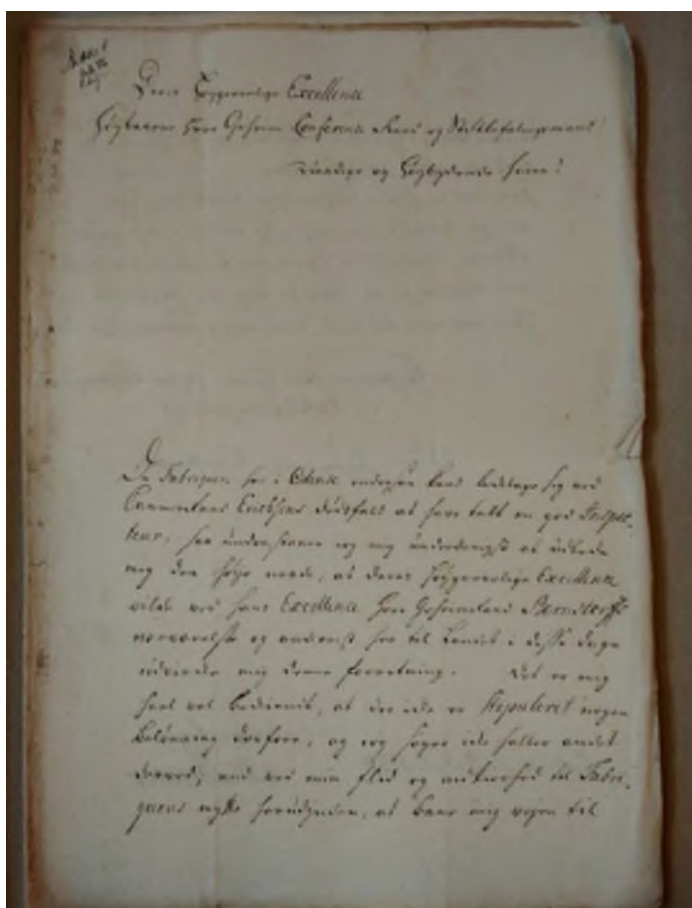 Deres Høygrevelige Excellence
Høybaarne Herr Geheime Conference Raad og Stiftbefalingsmand
Naadige og Høybydende Herre!
Da Fabriquen her i Odense
Cammerraad Erichsens dødsfald at have tabt en god Inspec-
teur, saa understaaer jeg mig underdanigst at udbede
mig den høye naade, at Deres Høygrevelige Excellence
vilde ved hans Excellence Herr Geheimeraad Bernstorffs
nærværelse og ankomst her til Landet i disse dage
udvirke mig denne forretning. Det er mig
heel vel bekiendt, at der ikke er stipuleret nogen
Belønning derfore, og jeg søger ikke heller andet
derved, end ved min flid og til Fabri-
quens nytte at bane mig veyen til